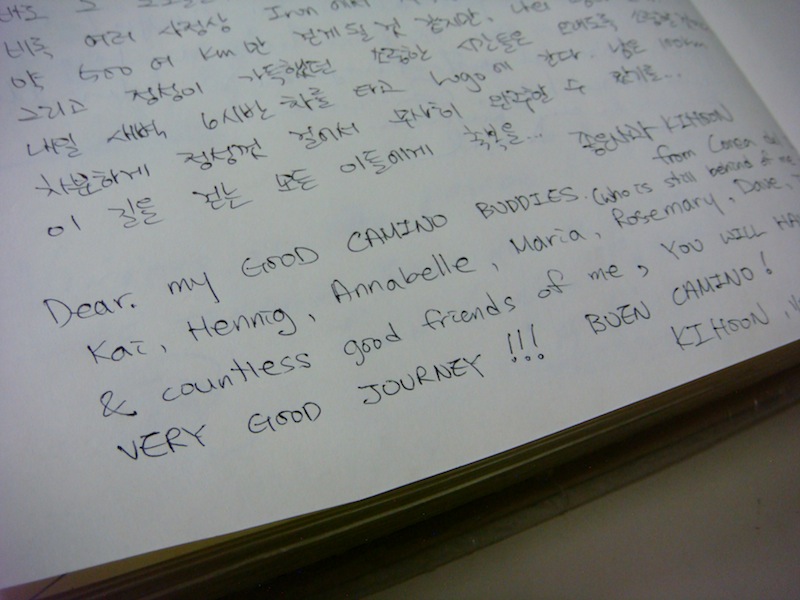 비록 여러 사정상 Irun 에서
약 500 여 km만 걷게 될 것 같지만,
그리고 정성이 가득했던 소중한 시간들은
내일 새벽 6시반 차를 타고 Lugo에 간다. 남은 100km
차분하게 정성껏 걸어서 무사히 완주할 수 있기를...
이 길을 걷는 모든 이들에게 축복을... KIHOON
from Corea
Dear. my GOOD CAMINO BUDDIES. (who is still behind of me
Kai, Hennig, Annabelle, Maria, Rosemary, Dave,
& countless good friends of me, YOU WILL HA
VERY GOOD JOURNEY !!! BUEN CAMINO!
KIHOON